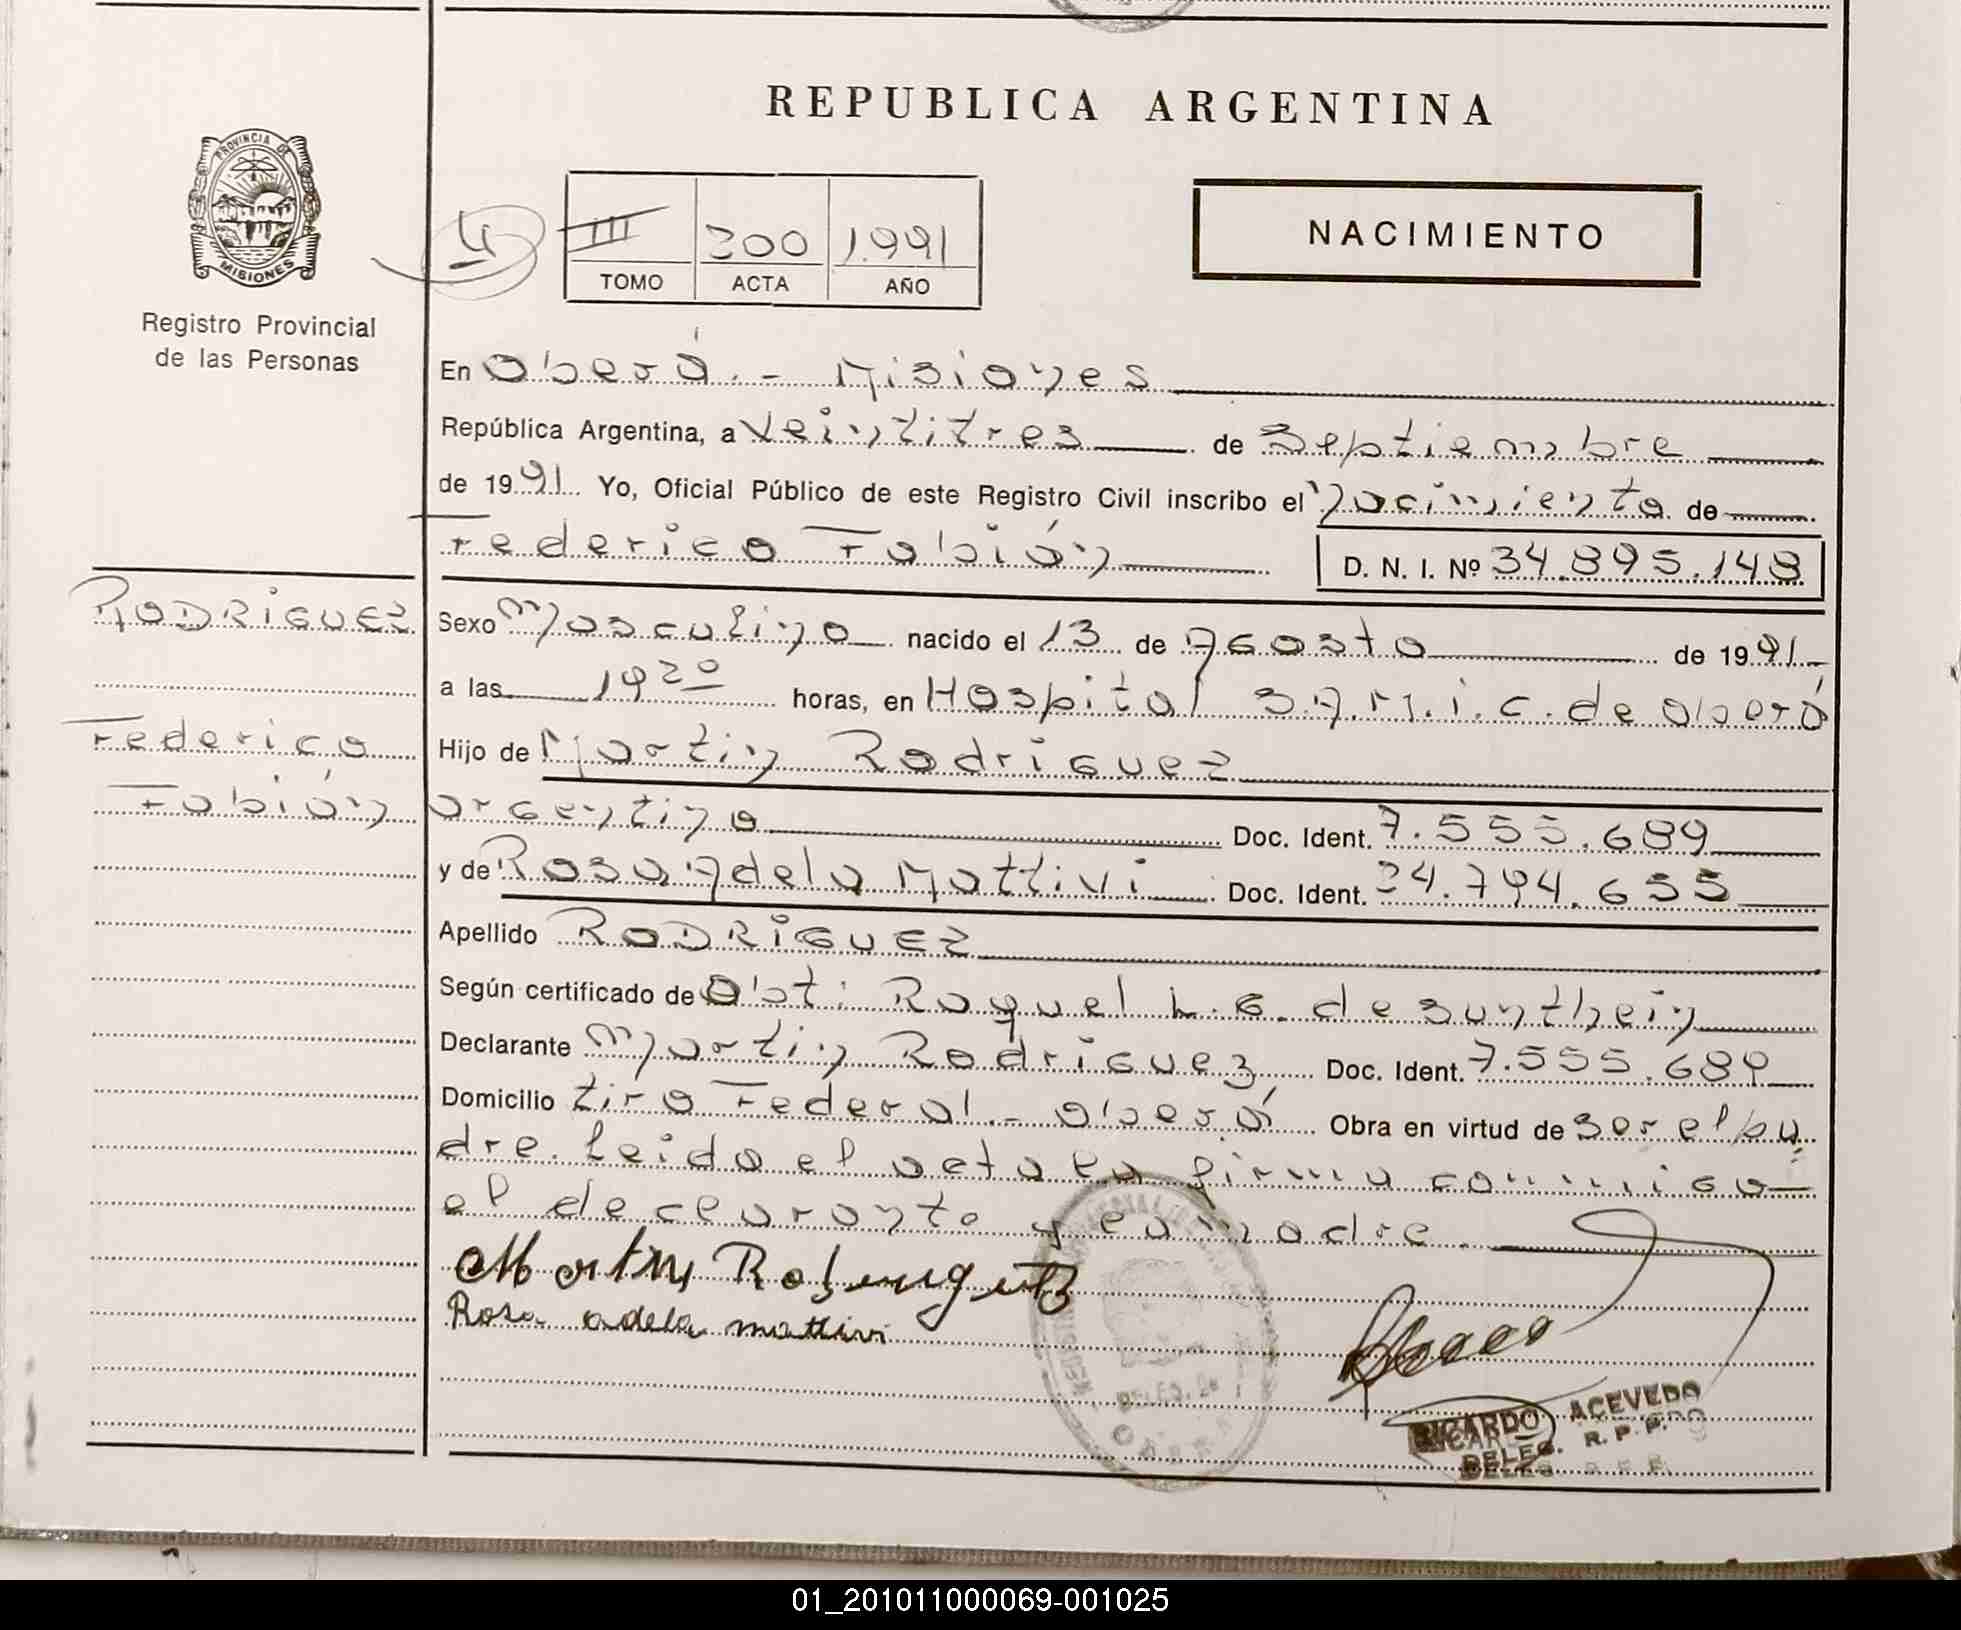 REPUBLICA ARGENTINA
PROVINCIA DE
MISIONES
Registro Provincial
de las Personas
4
III 300 1.991
TOMO ACTA AÑO
NACIMIENTO
En Oberá. - Misiones
República Argentina, a Veintitres de Septiembre
de 1991. Yo, Oficial Público de este Registro Civil inscribo el Nacimiento de
Federico Fabián D. N. I. Nº 34.895.148
RODRIGUEZ
Federico
Fabián
Sexo Masculino nacido el 13 de Agosto de 1991
a las 19 20 horas, en Hospital S.A.M.i.C. de Oberá
Hijo de Martin Rodriguez
argentino Doc. Ident. 7.555.689
y de Rosa Adela Mattivi Doc. Ident. 24.794.655
Apellido RODRIGUEZ
Según certificado de Obst: Raquel L.G. de Sunthein
Declarante Martin Rodriguez Doc. Ident. 7.555.689
Domicilio tiro Federal - Oberá Obra en virtud de ser el pa
dre. Leida el acta la firma conmigo
el declarante y la madre.
Martin
Rosa adela mattivi
DELEG.
RICARDO ACEVEDO
DELEG. R. P. P.
01_201011000069-001025